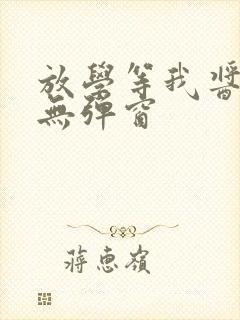 放學等我 醬
無彈窗
蔣惠嶺